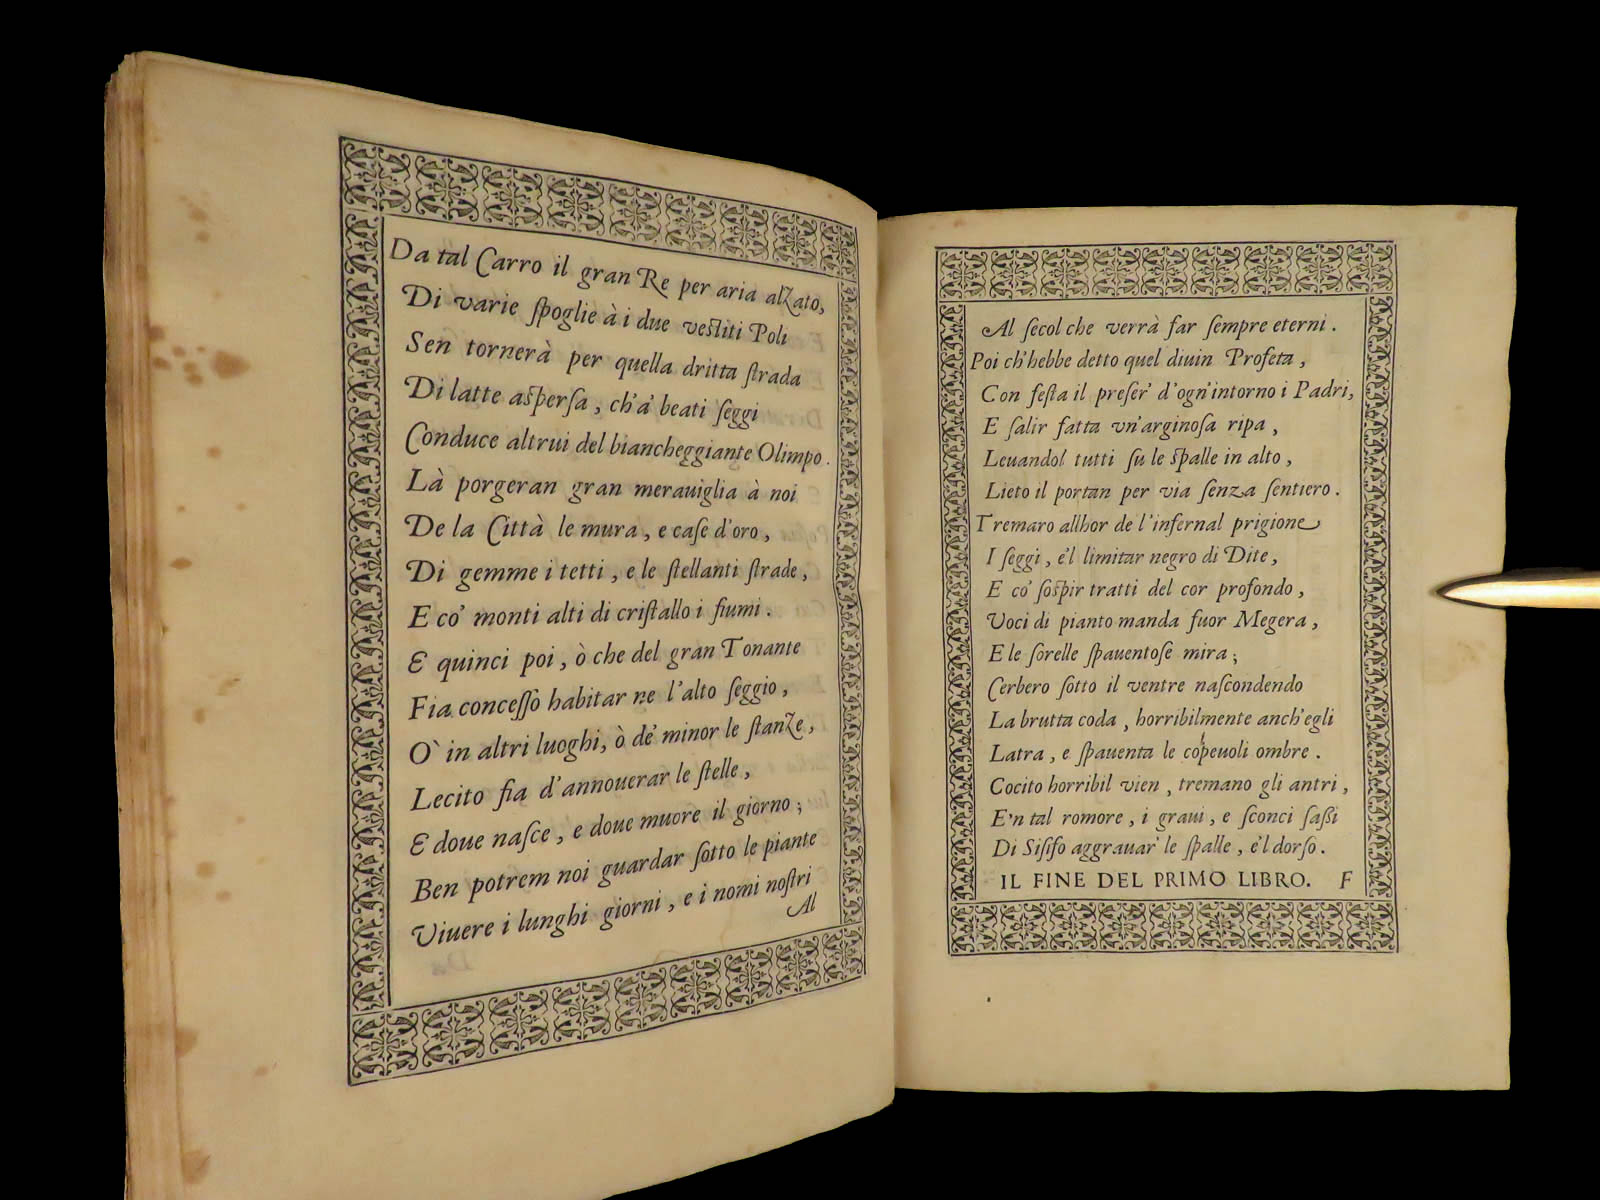 Da tal Carro il gran Re per aria alzato,
Di varie ſpoglie à i due veſtiti Poli
Sen tornerà per quella dritta ſtrada
Di latte aſperſa, ch'a' beati ſeggi
Conduce altrui del biancheggiante Olimpo.
Là porgeran gran merauiglia à noi
De la Città le mura, e caſe d'oro,
Di gemme i tetti, e le ſtellanti ſtrade,
E co' monti alti di criſtallo i fiumi.
E quinci poi, ò che del gran Tonante
Fia conceſſo habitar ne l'alto ſeggio,
O` in altri luoghi, ò de' minor le ſtanze,
Lecito fia d'annouerar le ſtelle,
E doue naſce, e doue muore il giorno;
Ben potrem noi guardar ſotto le piante
Viuere i lunghi giorni, e i nomi noſtri
Al
Al ſecol che verrà far ſempre eterni.
Poi ch'hebbe detto quel diuin Profeta,
Con feſta il preſer' d'ogn'intorno i Padri,
E ſalir fatta vn'arginoſa ripa,
Leuandol tutti ſu le ſpalle in alto,
Lieto il portan per via ſenza ſentiero.
Tremaro allhor de l'infernal prigione
I ſeggi, e'l limitar negro di Dite,
E co' ſoſpir tratti del cor profondo,
Voci di pianto manda fuor Megera,
E le ſorelle ſpauentoſe mira;
Cerbero ſotto il ventre naſcondendo
La brutta coda, horribilmente anch'egli
Latra, e ſpauenta le copeuoli ombre.
Cocito horribil vien, tremano gli antri,
E'n tal romore, i graui, e ſconci ſaſſi
Di Siſifo aggrauar' le ſpalle, e'l dorſo.
IL FINE DEL PRIMO LIBRO. F